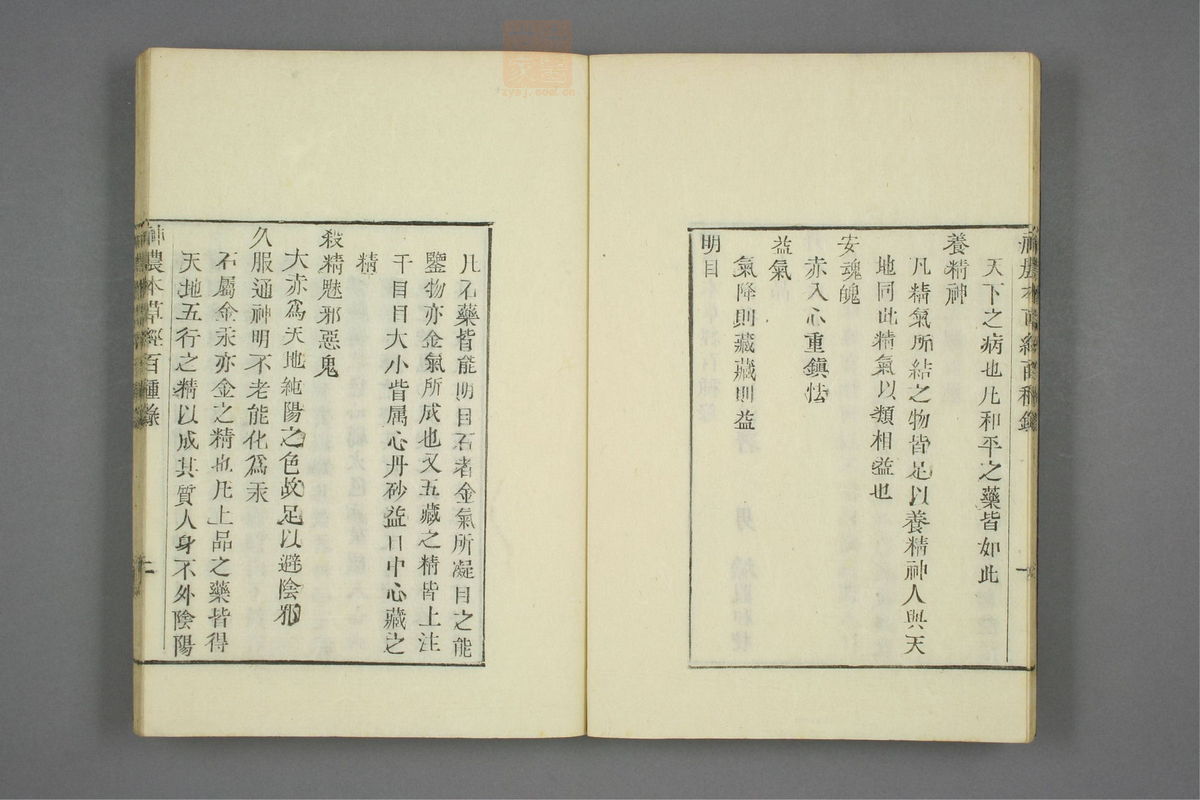 神農本草經百種錄
天下之病也凡和平之藥皆如此
養精神
凡精氣所結之物皆足以養精神人與天
地同此精氣以類相益也
安魂魄
赤入心重鎭怯
益氣
氣降則藏藏則益
明目
凡石藥皆能明目石者金氣所凝目之能
鑒物亦金氣所成也又五藏之精皆上注
于目目大小眥属心丹砂益目中心藏之
精
殺精魅邪惡鬼
大赤爲天地純陽之色故足以避陰邪
久服通神明不老能化爲汞
石屬金汞亦金之精也凡上品之藥皆得
天地五行之精以成其質人身不外陰陽
神農本草經百種錄
二
zysj.com.cn